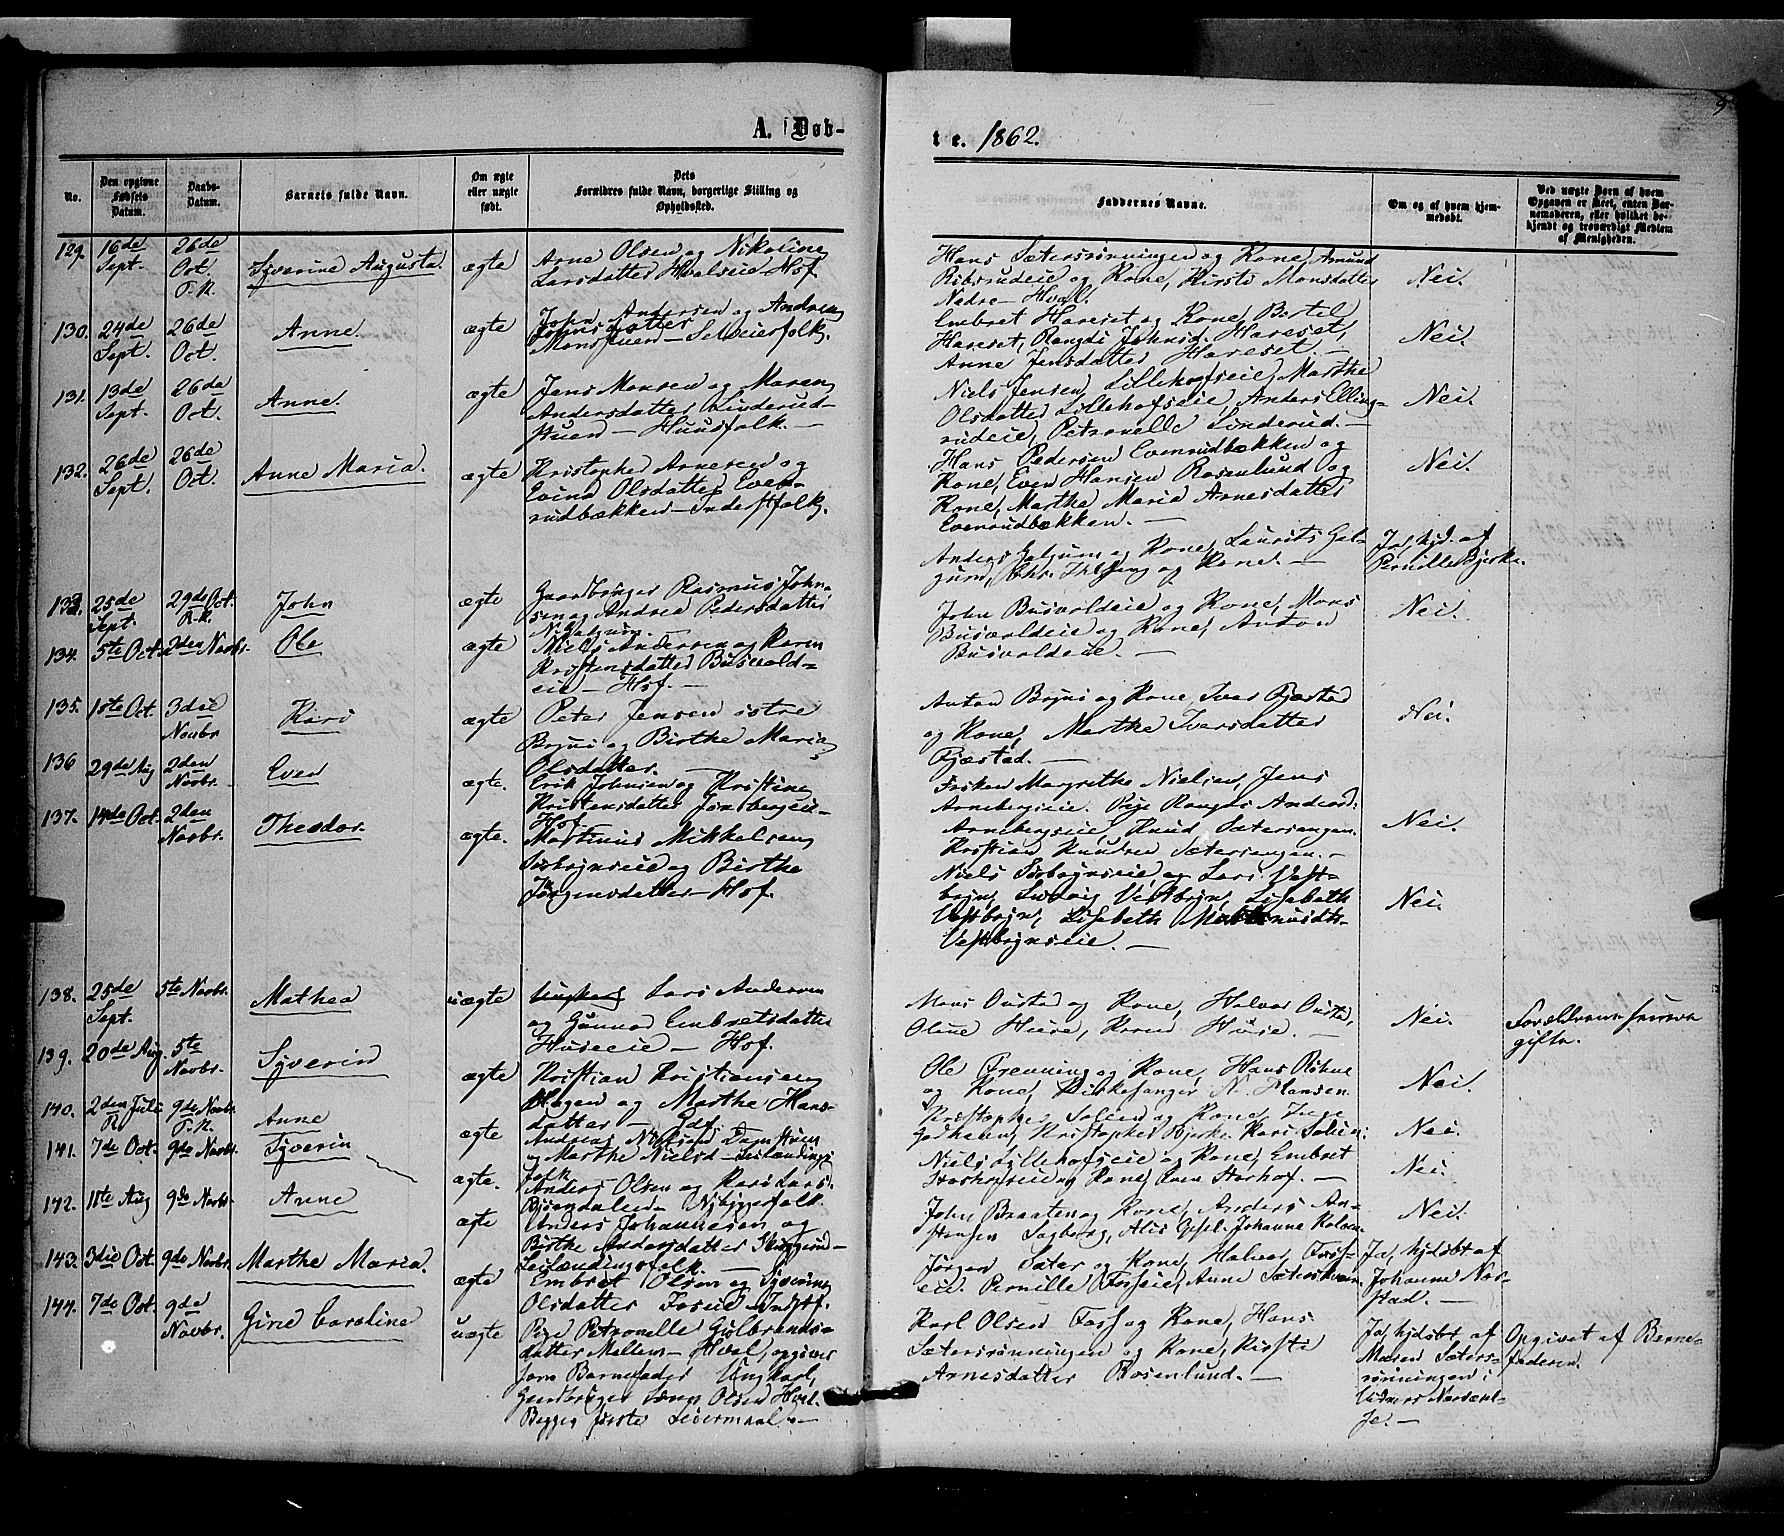 A. Døb-
te. 1862.
No.
Den opgivne
Fødsels
Datum.
Daabs-
Datum.
Barnets fulde Navn.
Om ægte
eller uægte
født.
Dets
Forældres fulde Navn, borgerlige Stilling og
Opholdssted.
Faddernes Navne.
Om og af hvem hjem-
medøbt.
Ved uægte Børn af hvem
Opgaven er skeet, enten Bar-
nemoderen, eller hvilket be-
kjendt og troværdigt Medlem
af Menigheden.
129. 16de Sept. 26de Oct. T.K. Syverine Augusta. ægte
Arne Olsen og Nikoline
Larsdatter Hvalseie Hof.
Hans Sætersrønningen og Kone, Amund
Ribsrudeie og Kone, Kirsti Monsdatter
Nedre-Hval.
Nei.
130. 24de Sept. 26de Oct. Anne ægte
John Andersen og Andrea
Johnsdatter
Monsstuen-Selveierfolk.
Embret Hareset og Kone, Bertel
Hareset, Rangdi Johnsd. Hareset,
Anne Jensdatter Hareset.
Nei.
131. 13de Sept. 26de Oct. Anne. ægte
Jens Monsen og Maren
Andersdatter Linderud-
stuen - Huusfolk.
Niels Jensen Lillehofseie, Marthe
Olsdatter Lillehofseie, Anders Elling-
rudeie, Petronelle Linderud.
Nei.
132. 26de Sept. 26de Oct. Anne Maria. ægte
Kristopher Arnesen og
Eline Olsdatter Even-
rudbækken-Inderstfolk.
Hans Pedersen Evenrudbækken og
Kone, Even Hansen Rosenlund og
Kone, Marthe Marie Arnesdatter
Evenrudbækken.
Nei.
133. 25de Sept. 29de Oct. R.K. John ægte
Gaardbruger Rasmus John-
sen og Andrea Pedersdatter
Anders Galgum og Kone, Laurits Gal-
gum, Chr. og Kone.
Ja, hjd. af
Pernille Bjerke
134. 5te Oct. 2den Novbr. Ole ægte
Niels Andersen og Karen
Kristensdatter Busvold-
eie - Hof.
John Busvoldeie og Kone, Mons
Busvoldeie og Kone, Anton
Busvoldeie.
Nei.
135. 1ste Oct. 3die Novbr. Kari ægte
Peter Jensen østre
Bojni og Birthe Maria
Olsdatter.
Anton Bojni og Kone, Iver Kjæstad
og Kone, Marthe Iversdatter
Kjæstad.
Nei.
136 29de Aug 2den Novbr. Even ægte.
Erik Johnsen og Kristine
Kristensdatter
Hof.
Frøken Margrethe Nielsen, Jens
Arnebergseie. Pige Rangdi Andersd.
Arnebergseie, Knud Sætersengen.
Kristian Knudsen Sætersengen.
Nei.
137. 14de Oct. 2den Novbr. Theodor. ægte.
Martinus Mikkelsen
og Birthe
Jørgensdatter-Hof.
Niels og Lars Vest-
bojn, Ludvig Vestbojn, Lisebeth
Vestbojn, Lisebeth
Vestbojnseie.
Nei.
138. 25de Sept. 5te Novbr. Mathea uægte
Ungkarl Lars Andersen
og Gunnor Embretsdatter
Huseeie - Hof.
Mons Oustad og Kone, Halvor Oustad,
Oline Husse, Karen Husse.
Nei.
Forældrene senere
gifte.
139. 20de Aug. 5te Novbr. Syverin ægte
Kristian Kristiansen
Hagen og Marthe Hans-
datter - Gdf.
Ole Frenning og Kone, Hans Røhne
og Kone, Kirkesanger N. Hansen
Nei.
140. 2den Juli 9de Novbr. T.K. Anne ægte
Andreas Nilsen
og Marthe Nielsd - Leilændings
folk.
Kristopher Solien og Kone,
Kristopher Bjerke Kari Solien
Nei.
141. 7de Oct. 9de Novbr. Syverin ægte.
Anders Olsen og Kari Lars.
Nybyggerfolk.
Niels Lillehofseie og Kone, Embret
Storhofseie og Kone, Even Storhof.
Nei.
142. 11te Aug 9de Novbr. Anne ægte
Anders Johannesen og
Birthe Andersdatter Skuggerud-
Leilændingsfolk.
John Braaten og Kone, Anders An-
stensen Sagberg, Johanne
Nei.
143. 3die Oct. 9de Novbr. Marthe Maria. ægte
Embret Olsen og Syverine
Olsdatter Fosseie Indstf.
Jørgen Sæter og Kone, Halvor Foss-
eie. Pernille Fosseie, Anne
Ja, hjdsbt af
Johanne Nor-
stad.
144. 7de Oct. 9de Novbr. Gine Caroline uægte
Pige Petronelle Gulbrands-
datter Mellem-Hval, opgiver
som Barnefader Ungkarl,
Gaardbruger Olsen Hval.
Begges første Leiermaal.
Karl Olsen Foss og Kone, Hans
Sætersrønningen og Kone, Kirsti
Arnesdatter Rosenlund.
Ja, hjdsbt af
Maren Sæters-
rønningen i
Opgivet af Barne-
faderen.